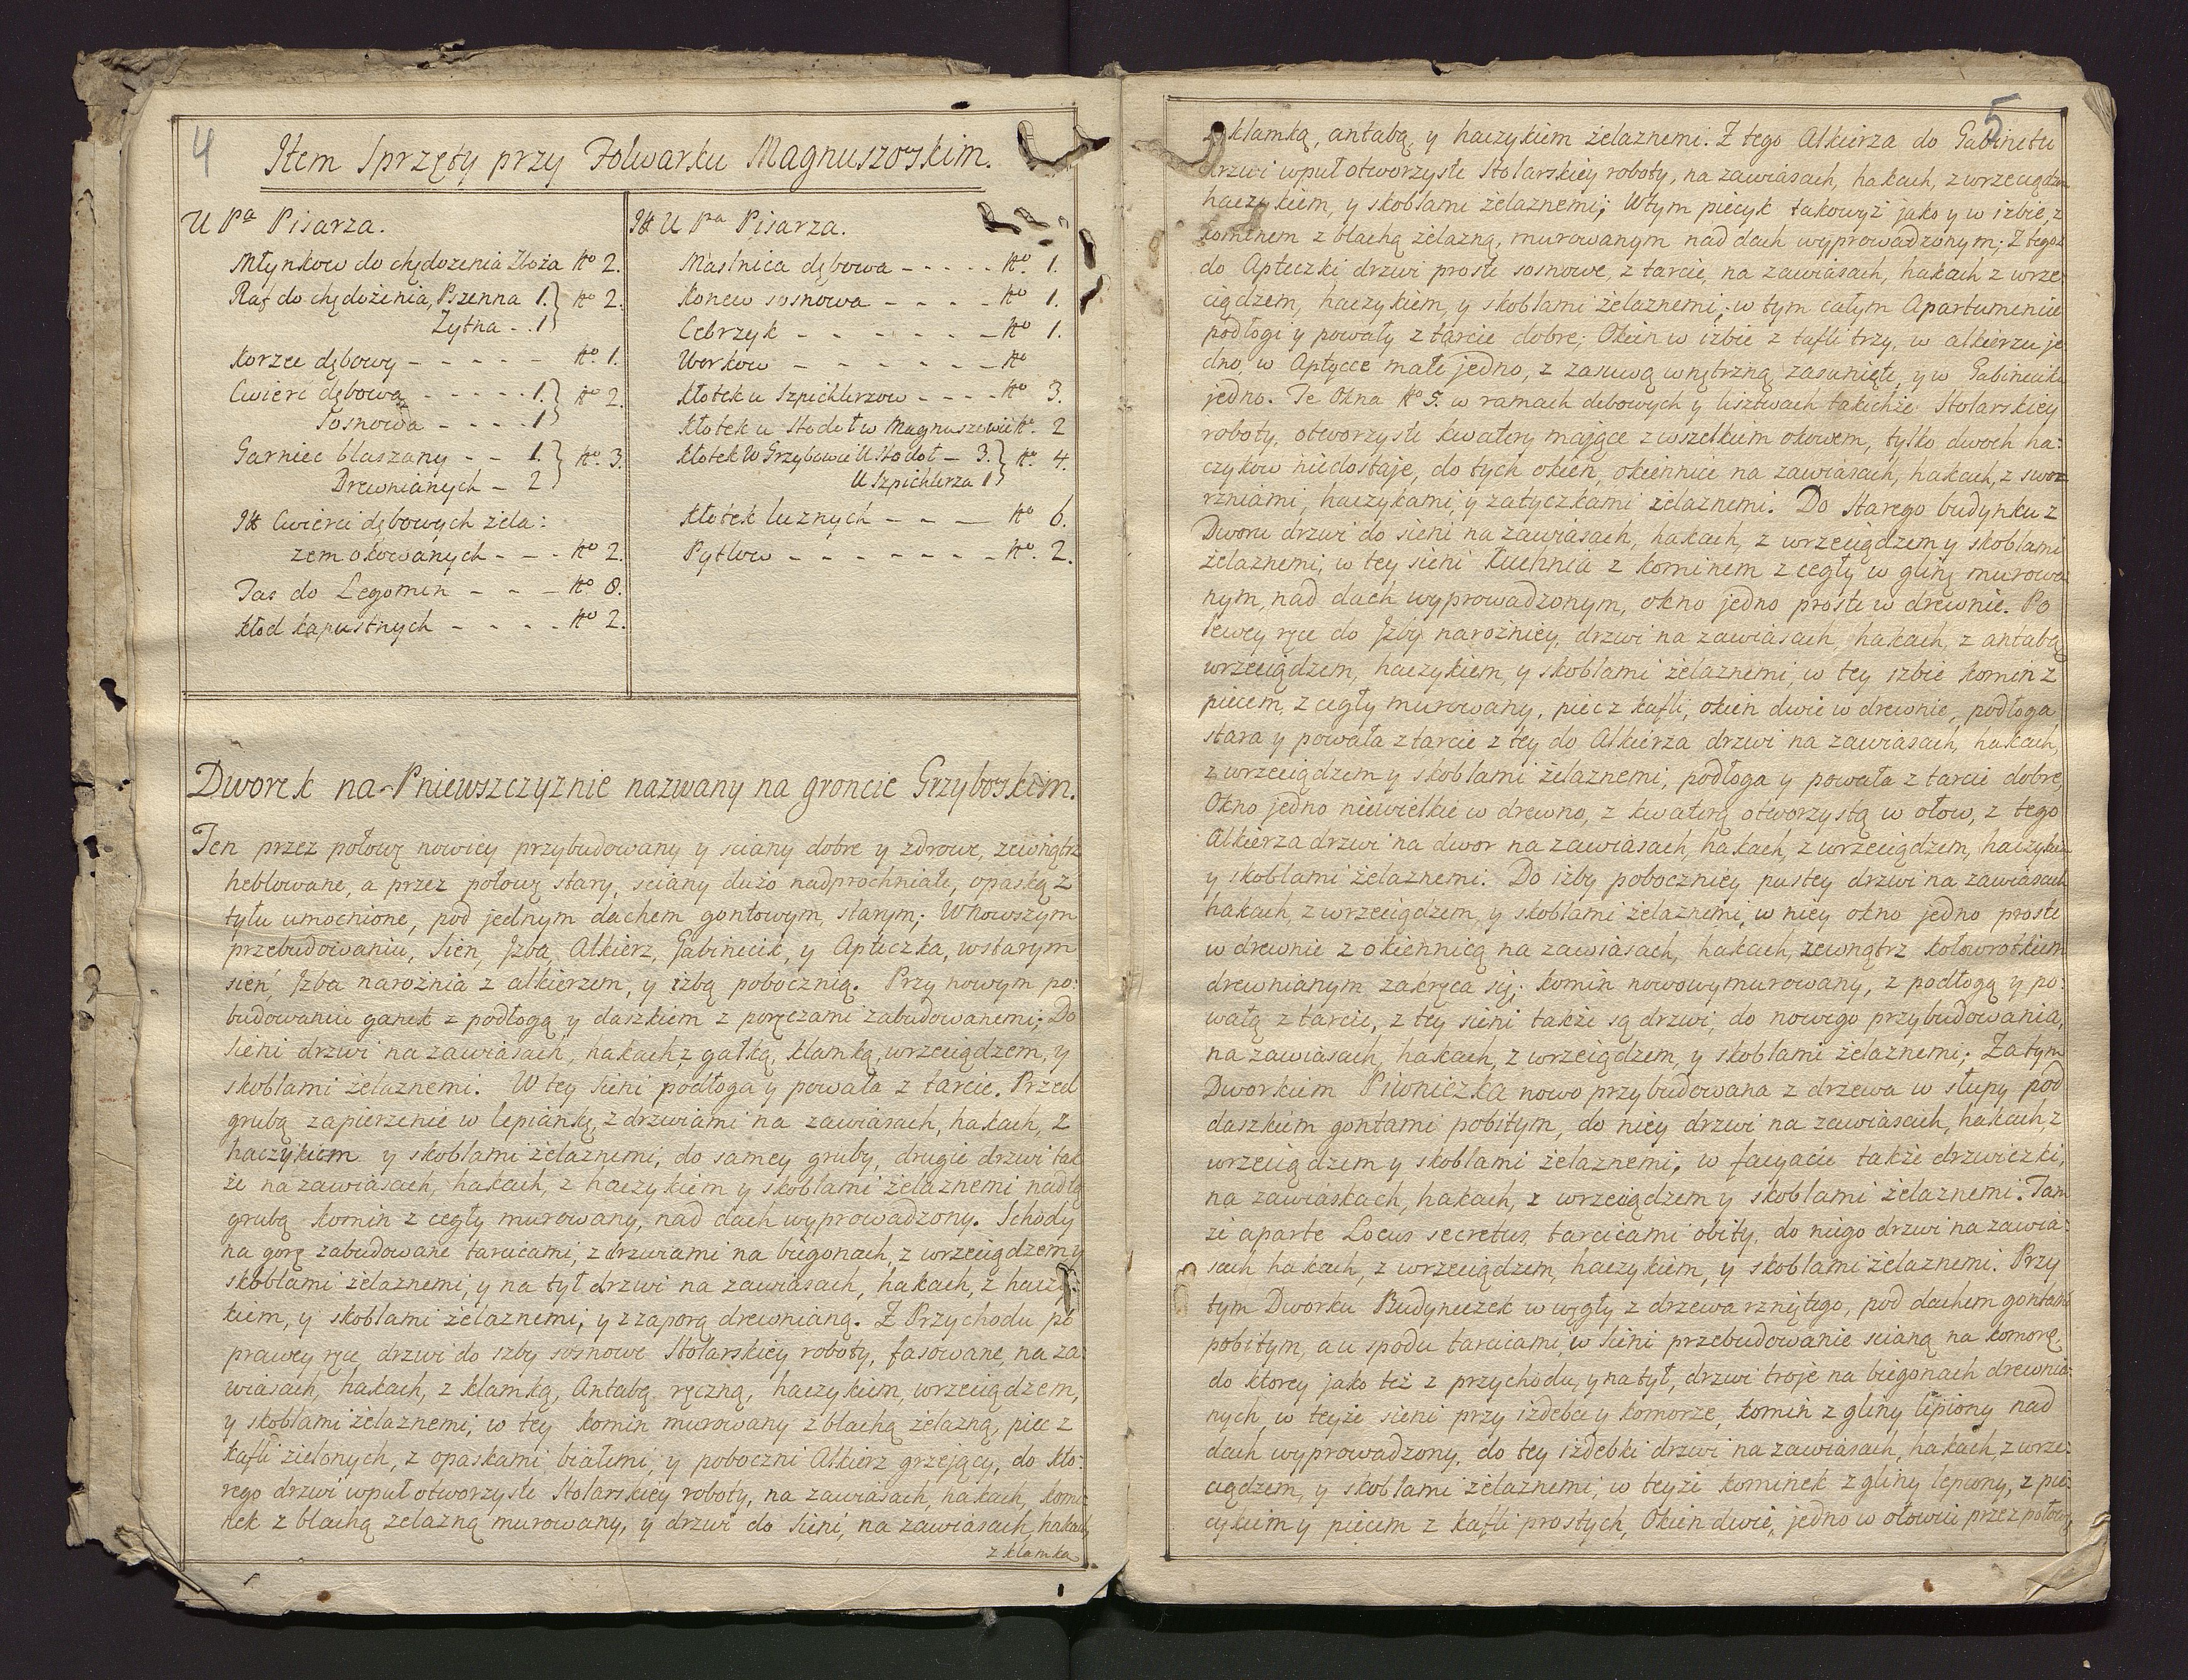 4
Item Sprzęty przy Folwarku Magnuszowskim.
U Pa Pisarza.
Młynkow do chędozenia Zboża No 2.
Raf do chędożenia, Pszenna 1. } No 2.
Żytna - . 1
Korzec dębowy - - - - - No. 1.
Cwierć dębowa - - - - - 1. } No 2.
Sosnowa - - - - 1
Garniec blaszany - - 1. } No. 3.
Drewnianych - 2
Itt Cwierci dębowych żela:
zem okowanych - - - No 2.
Fas do Legomin - - - No 8.
Kłod kapustnych - - - - No 2.
Itt U Pa Pisarza.
Maslnica dębowa - - - - - No. 1.
Konew sosnowa - - - - No 1.
Cebrzyk - - - - - - - No 1.
Workow - - - - - - No
Kłotek u Szpichlerzow - - - - No 3.
Kłotek u Stodoł w Magnuszewie No. 2
Kłotek W Grzybowie U Stodoł - 3. } No. 4.
U Szpichlerza 1
Kłotek luznych - - - No 6.
Pytlow - - - - - - - No. 2.
Dworek na Pniewszczyznie nazwany na groncie Grzybowskim.
Ten przez połowę nowiey przybudowany y sciany dobre y zdrowe, zewnątrz
heblowane, a przez połowę stary, sciany dużo nadprochniałe, opaską z
tyłu umocnione, pod jednym dachem gontowym, starym; W nowszym
przebudowaniu, Sien, Jzba, Alkierz, Gabinecik, y Apteczka, w starym
sień, Jzba narożnia z alkierzem, y izbą pobocznią. Przy nowym po:
budowaniu ganek z podłogą y daszkiem z poręczami zabudowanemi; Do
Sieni drzwi na zawiasach, hakach, z gałką, klamką, wrzeciądzem, y
skoblami żelaznemi. W tey Sieni podłoga y powała z tarcic. Przed
grubą zapierzenie w lepiankę, z drzwiami na zawiasach, hakach, z
haczykiem y skoblami żelaznemi, do samey gruby, drugie drzwi tak
że na zawiasach, hakach, z haczykiem y skoblami żelaznemi nad tą
grubą komin z cegły murowany, nad dach wyprowadzony. Schody
na gorę zabudowane tarcicami, z drzwiami na biegonach, z wrzeciądzem y
skoblami żelaznemi, y na tył drzwi na zawiasach, hakach, z haczy:
kiem, y skoblami żelaznemi; y z zaporą drewnianą. Z Przychodu po
prawey ręce drzwi do izby sosnowe Stolarskiey roboty, fasowane, na za:
wiasach, hakach, z klamką, Antabą ręczną, haczykiem, wrzeciądzem,
y skoblami żelaznemi; w tey komin murowany z blachą żelazną, piec z
kafli zielonych, z opaskami białemi, y poboczni Alkierz grzejący, do kto:
rego drzwi wpuł otworzyste Stolarskiey roboty, na zawiasach, hakach, komi:
nek z blachą żelazną murowany, y drzwi do Sieni, na zawiasach, hakach,
z klamka
5
z klamką, antabą, y haczykiem żelaznemi. Z tego Alkierza do Gabinetu
drzwi wpuł otworzyste Stolarskiey roboty, na zawiasach, hakach, z wrzeciądzem
haczykiem, y skoblami żelaznemi; W tym piecyk takowyż jako y w izbie, z
kominem z blachą żelazną, murowanym nad dach wyprowadzonym; Z tegoż
do Apteczki drzwi proste sosnowe, z tarcic, na zawiasach, hakach z wrze:
ciądzem, haczykiem, y skoblami żelaznemi; w tym całym Apartamencie
podłogi y powały z tarcic dobre; Okien w izbie z tafli trzy, w alkierzu je
dno, w Aptyce małe jedno, z zasuwą wnętrzną zasunięte, y w Gabinecik
jedno. Te Okna No 5. w ramach dębowych y lisztwach takichże Stolarskiey
roboty, otworzyste kwatery maiące z wszelkiem okowem, tylko dwoch ha:
czykow niedostaje, do tych okien, okiennice na zawiasach, hakach, z swor
rzniami, haczykami, y zatyczkami żelaznemi. Do Starego budynku z
Dworu drzwi do sieni na zawiasach, hakach, z wrzeciądzem y skoblami
żelaznemi; w tey sieni Kuchnia z kominem z cegły w glinę murowa
nym, nad dach wyprowadzonym, okno jedno proste w drewnie. Po
lewey ręce do Jzby narożniey, drzwi na zawiasach, hakach, z antabą
wrzeciądzem, haczykiem, y skoblami żelaznemi, w tey izbie komin z
piecem, z cegły murowany, piec z kafli, okien dwie w drewnie, podłoga
stara y powała z tarcic z tey do Alkierza drzwi na zawiasach, hakach,
z wrzeciądzem y skoblami żelaznemi, podłoga y powała z tarcic dobre,
Okno jedno niewielkie w drewno, z kwaterą otworzystą w ołow, z tego
Alkierza drzwi na dwor na zawiasach, hakach, z wrzeciądzem, haczykiem
y skoblami żelaznemi. Do izby poboczniey pustey drzwi na zawiasach
hakach, z wrzeciądzem, y skoblami żelaznemi, w niey okno jedno proste
w drewnie z okiennicą na zawiasach, hakach, zewnątrz kołowrotkiem
drewnianym zakręca się; komin nowo wymurowany, z podłogą y po:
wałą z tarcic, z tey sieni także są drzwi, do nowego przybudowania,
na zawiasach, hakach, z wrzeciądzem, y skoblami żelaznemi; Za tym
Dworkiem Piwniczka nowo przybudowana z drzewa w słupy pod
daszkiem gontami pobitym, do niey drzwi na zawiasach, hakach, z
wrzeciądzem y skoblami żelaznemi, w facyacie także drzwiczki,
na zawiaskach, hakach, z wrzeciądzem y skoblami żelaznemi. Tam
że aparte Locus secretus tarcicami obity, do niego drzwi na zawia:
sach hakach, z wrzeciądzem, haczykiem, y skoblami żelaznemi. Przy
tym Dworku Budyneczek w węgły z drzewa rzniętego, pod dachem gontami
pobitym, a u spodu tarcicami, w Sieni przebudowanie scianą na komorę,
do ktorey jako też z przychodu, y na tył, drzwi troje na biegonach drewnia:
nych, w teyże sieni przy izdebce y komorze, komin z gliny lepiony nad
dach wyprowadzony, do tey izdebki drzwi na zawiasach, hakach, z wrze:
ciądzem, y skoblami żelaznemi, w teyże kominek z gliny lepiony, z pie:
cykiem y piecem z kafli prostych, Okien dwie, jedno w ołowiu przez połowę